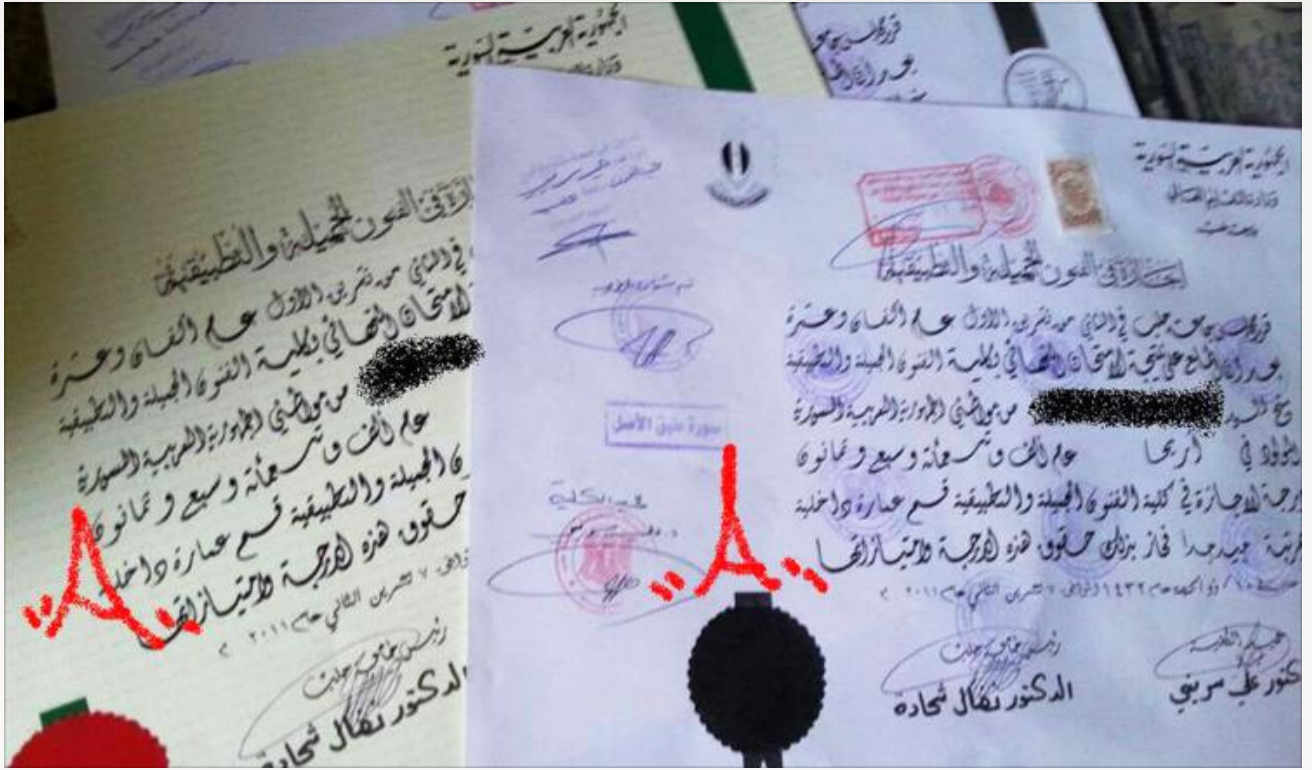 الجمهورية العربية السورية
وزارة
في الفنون الجميلة والتطبيقية
في الثاني من تشرين الأول عام ألفان وعشرة
الامتحان النهائي بكلية الفنون الجميلة والتطبيقية
من مواطني الجمهورية العربية السورية
عام ألف وتسعمائة وسبع وثمانون
الجميلة والتطبيقية قسم عمارة داخلية
حقوق هذه الدرجة وامتيازاتها
٧ تشرين الثاني عام ٢٠١١ م
رئيس جامعة حلب
الدكتور نضال شحادة
"A"
قرر مجلس
بعد
الجمهورية العربية السورية
وزارة التعليم العالي
جامعة حلب
إجازة في الفنون الجميلة والتطبيقية
قرر مجلس جامعة حلب في الثاني من تشرين الأول عام ألفان وعشرة
بعد اطلاع على نتيجة الامتحان النهائي بكلية الفنون الجميلة والتطبيقية
منح السيد من مواطني الجمهورية العربية السورية
المولود في أريحا عام ألف وتسعمائة وسبع وثمانون
درجة الاجازة في كلية الفنون الجميلة والتطبيقية قسم عمارة داخلية
بمرتبة جيد جدا فحاز بذلك حقوق هذه الدرجة وامتيازاتها
ذو الحجة عام ١٤٣٢ الموافق ٧ تشرين الثاني عام ٢٠١١ م
رئيس جامعة حلب
الدكتور نضال شحادة
عميد الكلية
الدكتور علي سرميني
صورة طبق الأصل
عميد الكلية
"A"